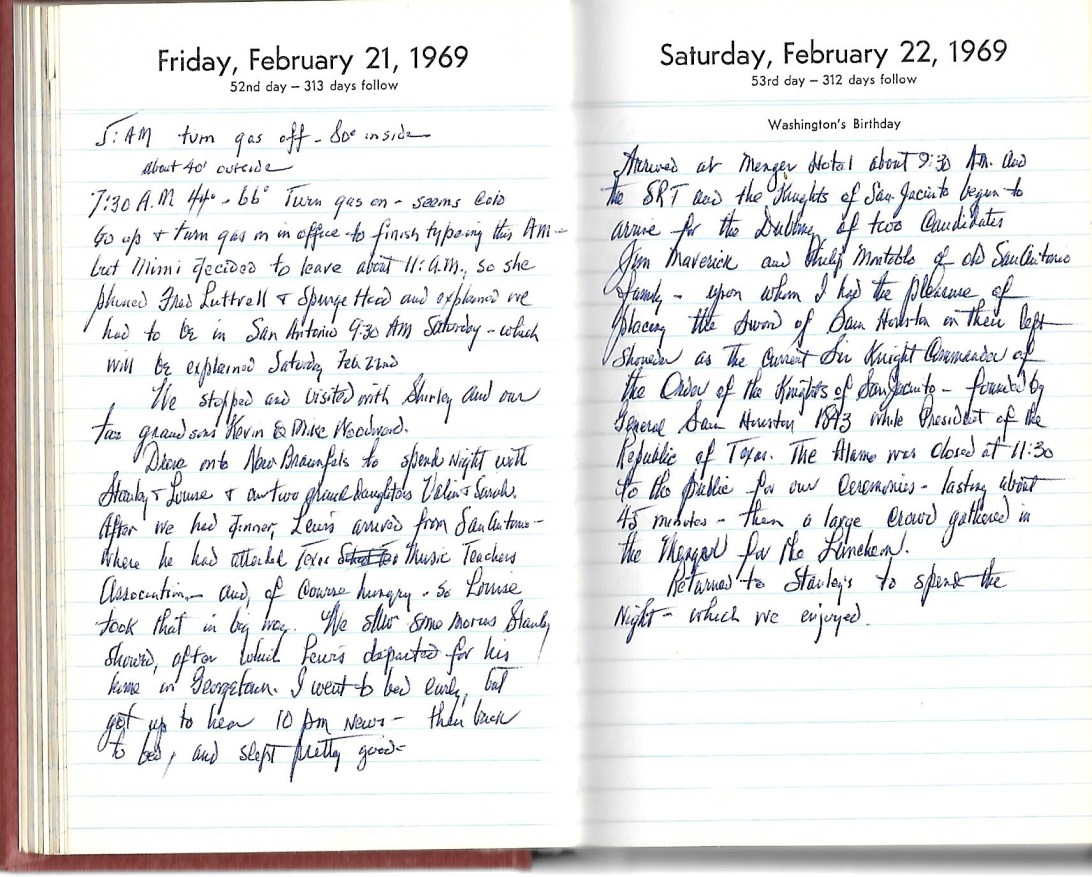 Friday, February 21, 1969
52nd day – 313 days follow
5: AM turn gas off - 80° inside
about 40° outside
7:30 A.M 44° - 66° Turn gas on - seems cold
Go up & turn gas on in office to finish typeing this AM -
but Mimi decided to leave about 11: A.M., so she
phoned Fred Luttrell & Spurge Hood and explained we
had to be in San Antonio 9:30 AM Saturday - which
will be explained Saturday Feb 22nd
We stopped and visited with Shirley and our
two grandsons Kevin & Mike Woodward.
Drove onto New Braunfels to spend night with
Stanley & Louise & our two granddaughters & Sarah.
After we had dinner, Lewis arrived from San Antonio -
where he had attended Texas Music Teachers
Association - and, of course hungry - so Louise
took that in big way. We saw some movies Stanley
showed, after which Lewis departed for his
home in Georgetown. I went to bed early, but
got up to hear 10 pm News - then back
to bed, and slept pretty good -
Saturday, February 22, 1969
53rd day – 312 days follow
Washington's Birthday
Arrived at Menger Hotel about 9:30 AM. and
the SRT and the Knights of San Jacinto began to
arrive for the Dubbing of two Candidates
Jim Maverick and Philip Montalbo of old San Antonio
Family - upon whom I had the pleasure of
placing the Sword of Sam Houston on their left
Shoulder as the Current Sir Knight Commander of
the Order of the Knights of San Jacinto - founded by
General Sam Houston 1843 while President of the
Republic of Texas. The Alamo was closed at 11:30
to the public for our Ceremonies - lasting about
45 minutes - then a large Crowd gathered in
the Menger for the Luncheon.
Returned to Stanley's to spend the
Night - which we enjoyed.